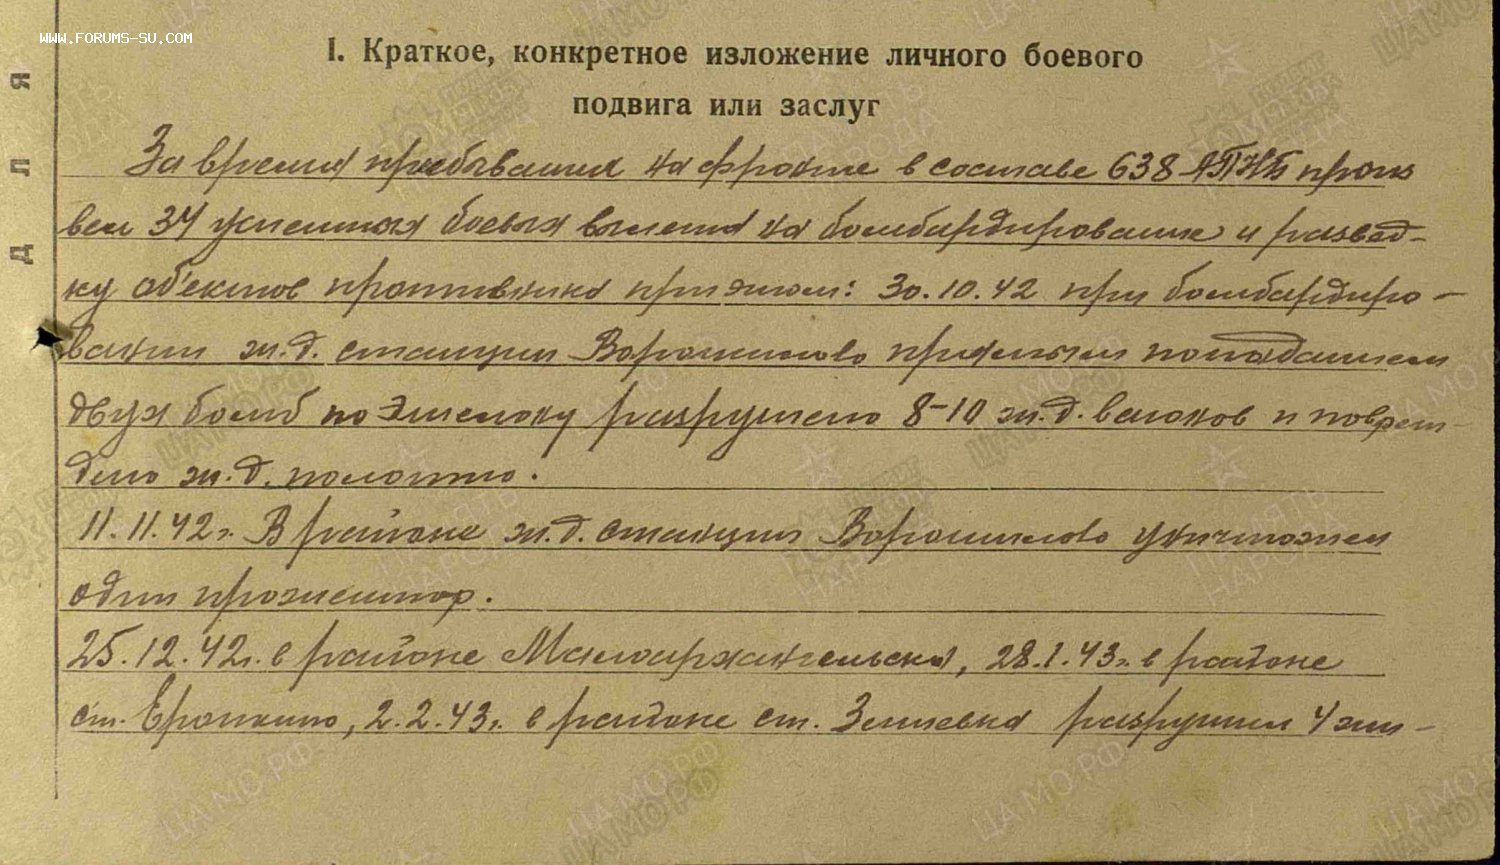 WWW.FORUMS-SU.COM
I. Краткое, конкретное изложение личного боевого
подвига или заслуг
Для
За время пребывания на фронте в составе 638 АПНБ произ
вел 34 успешных боевых вылета на бомбардирование и развед-
ку об'ектов противника при этом: 30.10.42 при бомбардиро-
вании ж.д. станции Ворошилово прямым попаданием
двух бомб по эшелону разрушено 8-10 ж.д. вагонов и повреж-
дено ж.д. полотно.
11.11.42г. В районе ж.д. станции Ворошилово уничтожил
один прожектор.
25.12.42г. в районе Малоархангельска, 28.1.43г. в районе
ст. Еропкино, 2.2.43г. в районе ст. Змиевка разрушил 4
ЦАМО РФ
ПАМЯТЬ
НАРОДА